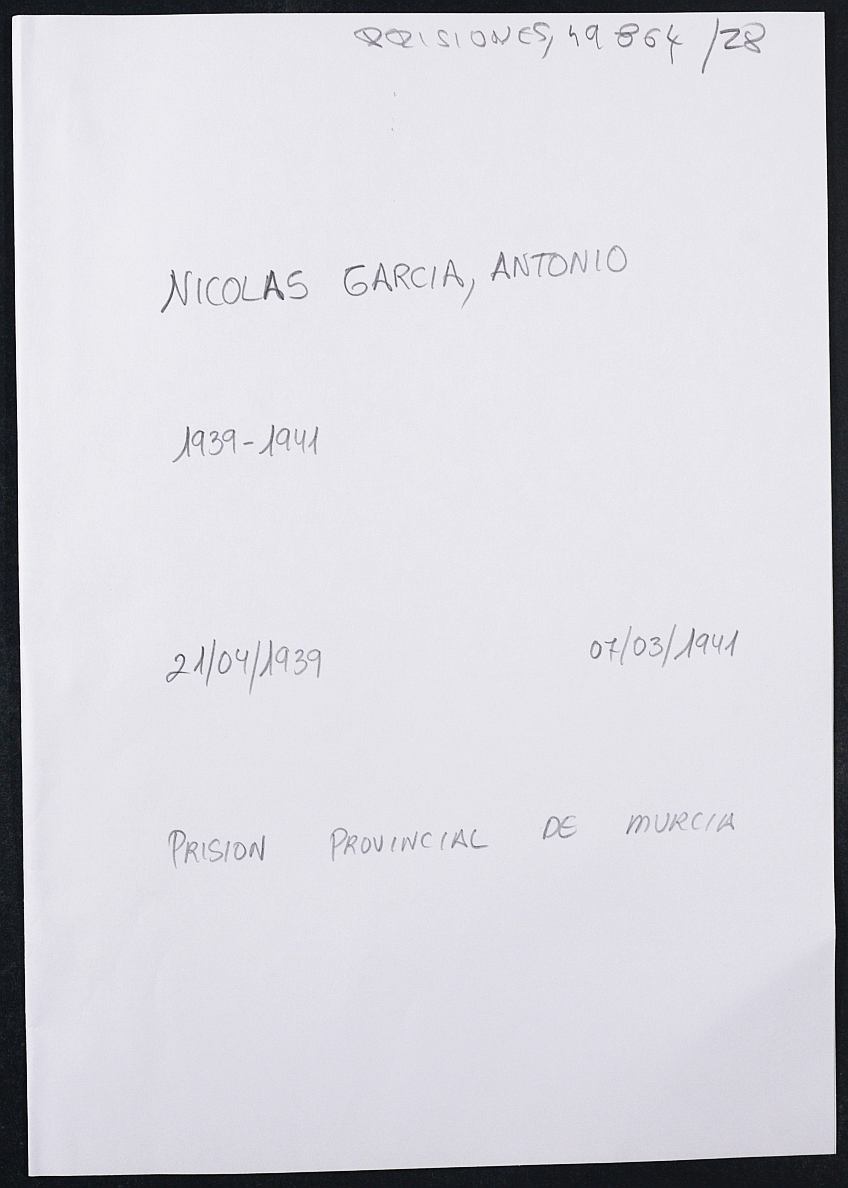 PRISIONES, 49864/28
NICOLAS GARCIA, ANTONIO
1939-1941
21/04/1939 07/03/1941
PRISION PROVINCIAL DE MURCIA